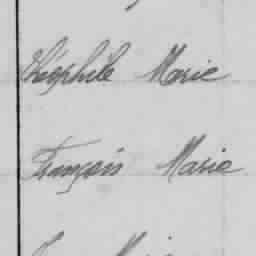 Théophile Marie
François Marie
Marie